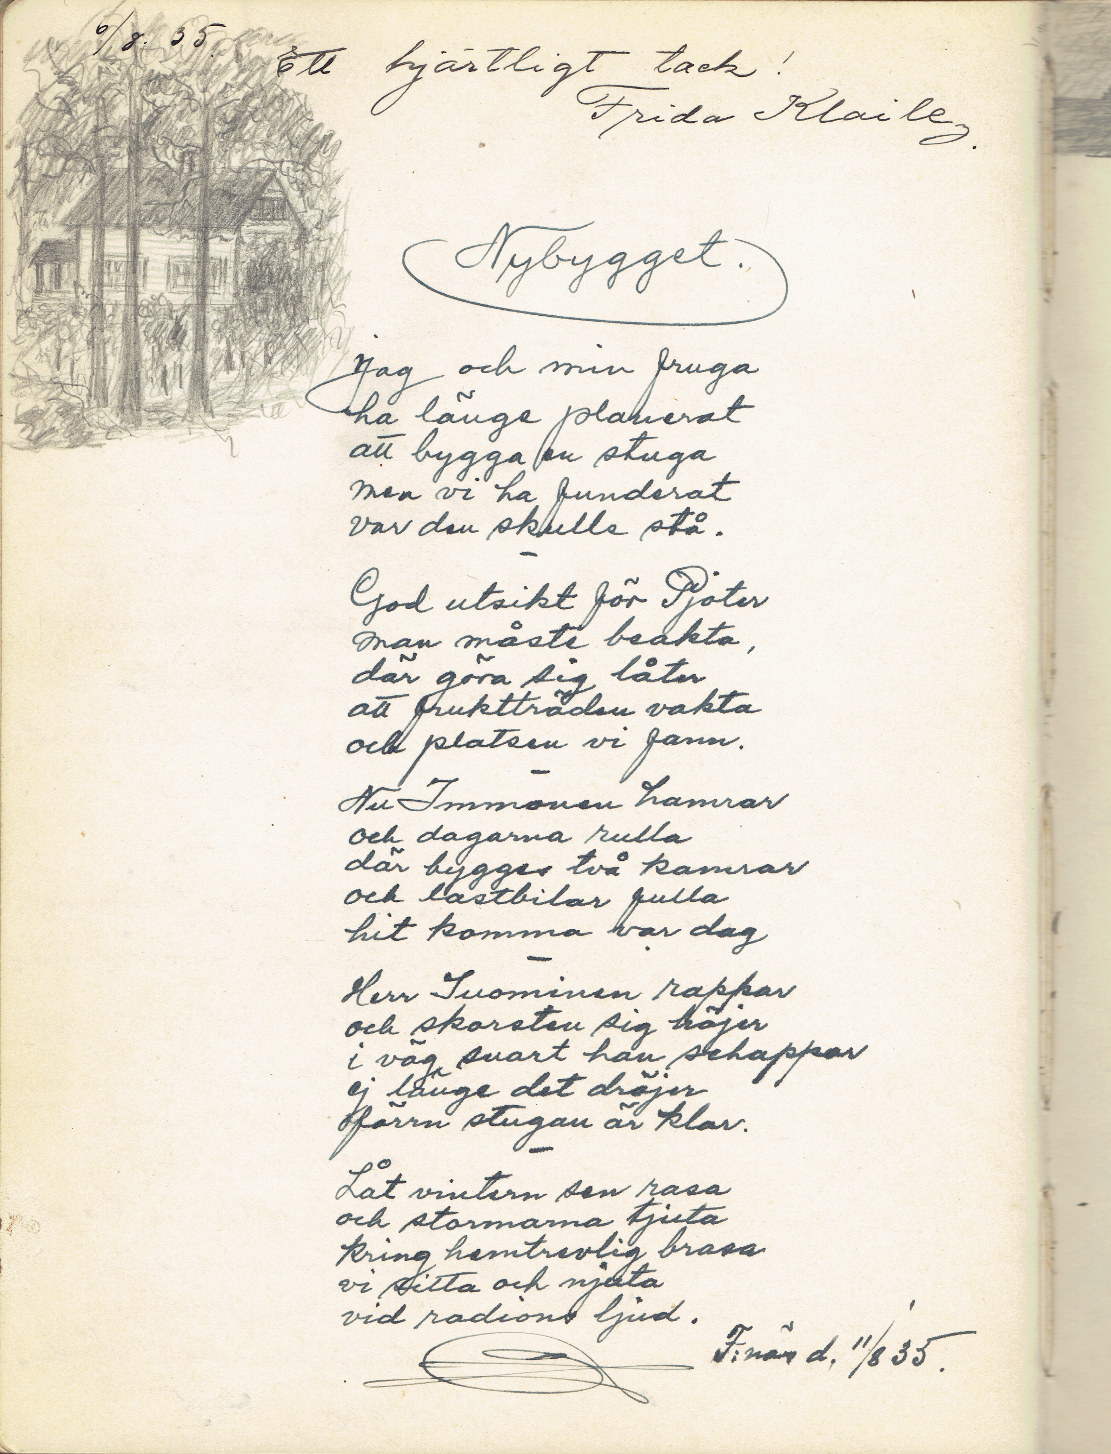 6/8. 35.
Ett hjärtligt tack!
Frida Klaile
Nybygget.
jag och min fruga
ha länge planerat
att bygga en stuga
men vi ha funderat
var den skulle stå.
God utsikt för Pjoter
man måste beakta,
där göra sig låter
att fruktträden vakta
och platsen vi fann.
Nu Immonen hamrar
och dagarna rulla
där bygges två kamrar
och lastbilar fulla
hit komma var dag
Herr Suominen rappar
och skorsten sig höjer
i väg snart han schappar
ej länge det dröjer
förrn stugan är klar.
Låt vintern sen rasa
och stormarna tjuta
kring hemtrevlig brasa
vi sitta och njuta
vid radions ljud.
F:näs d. 11/8 35.